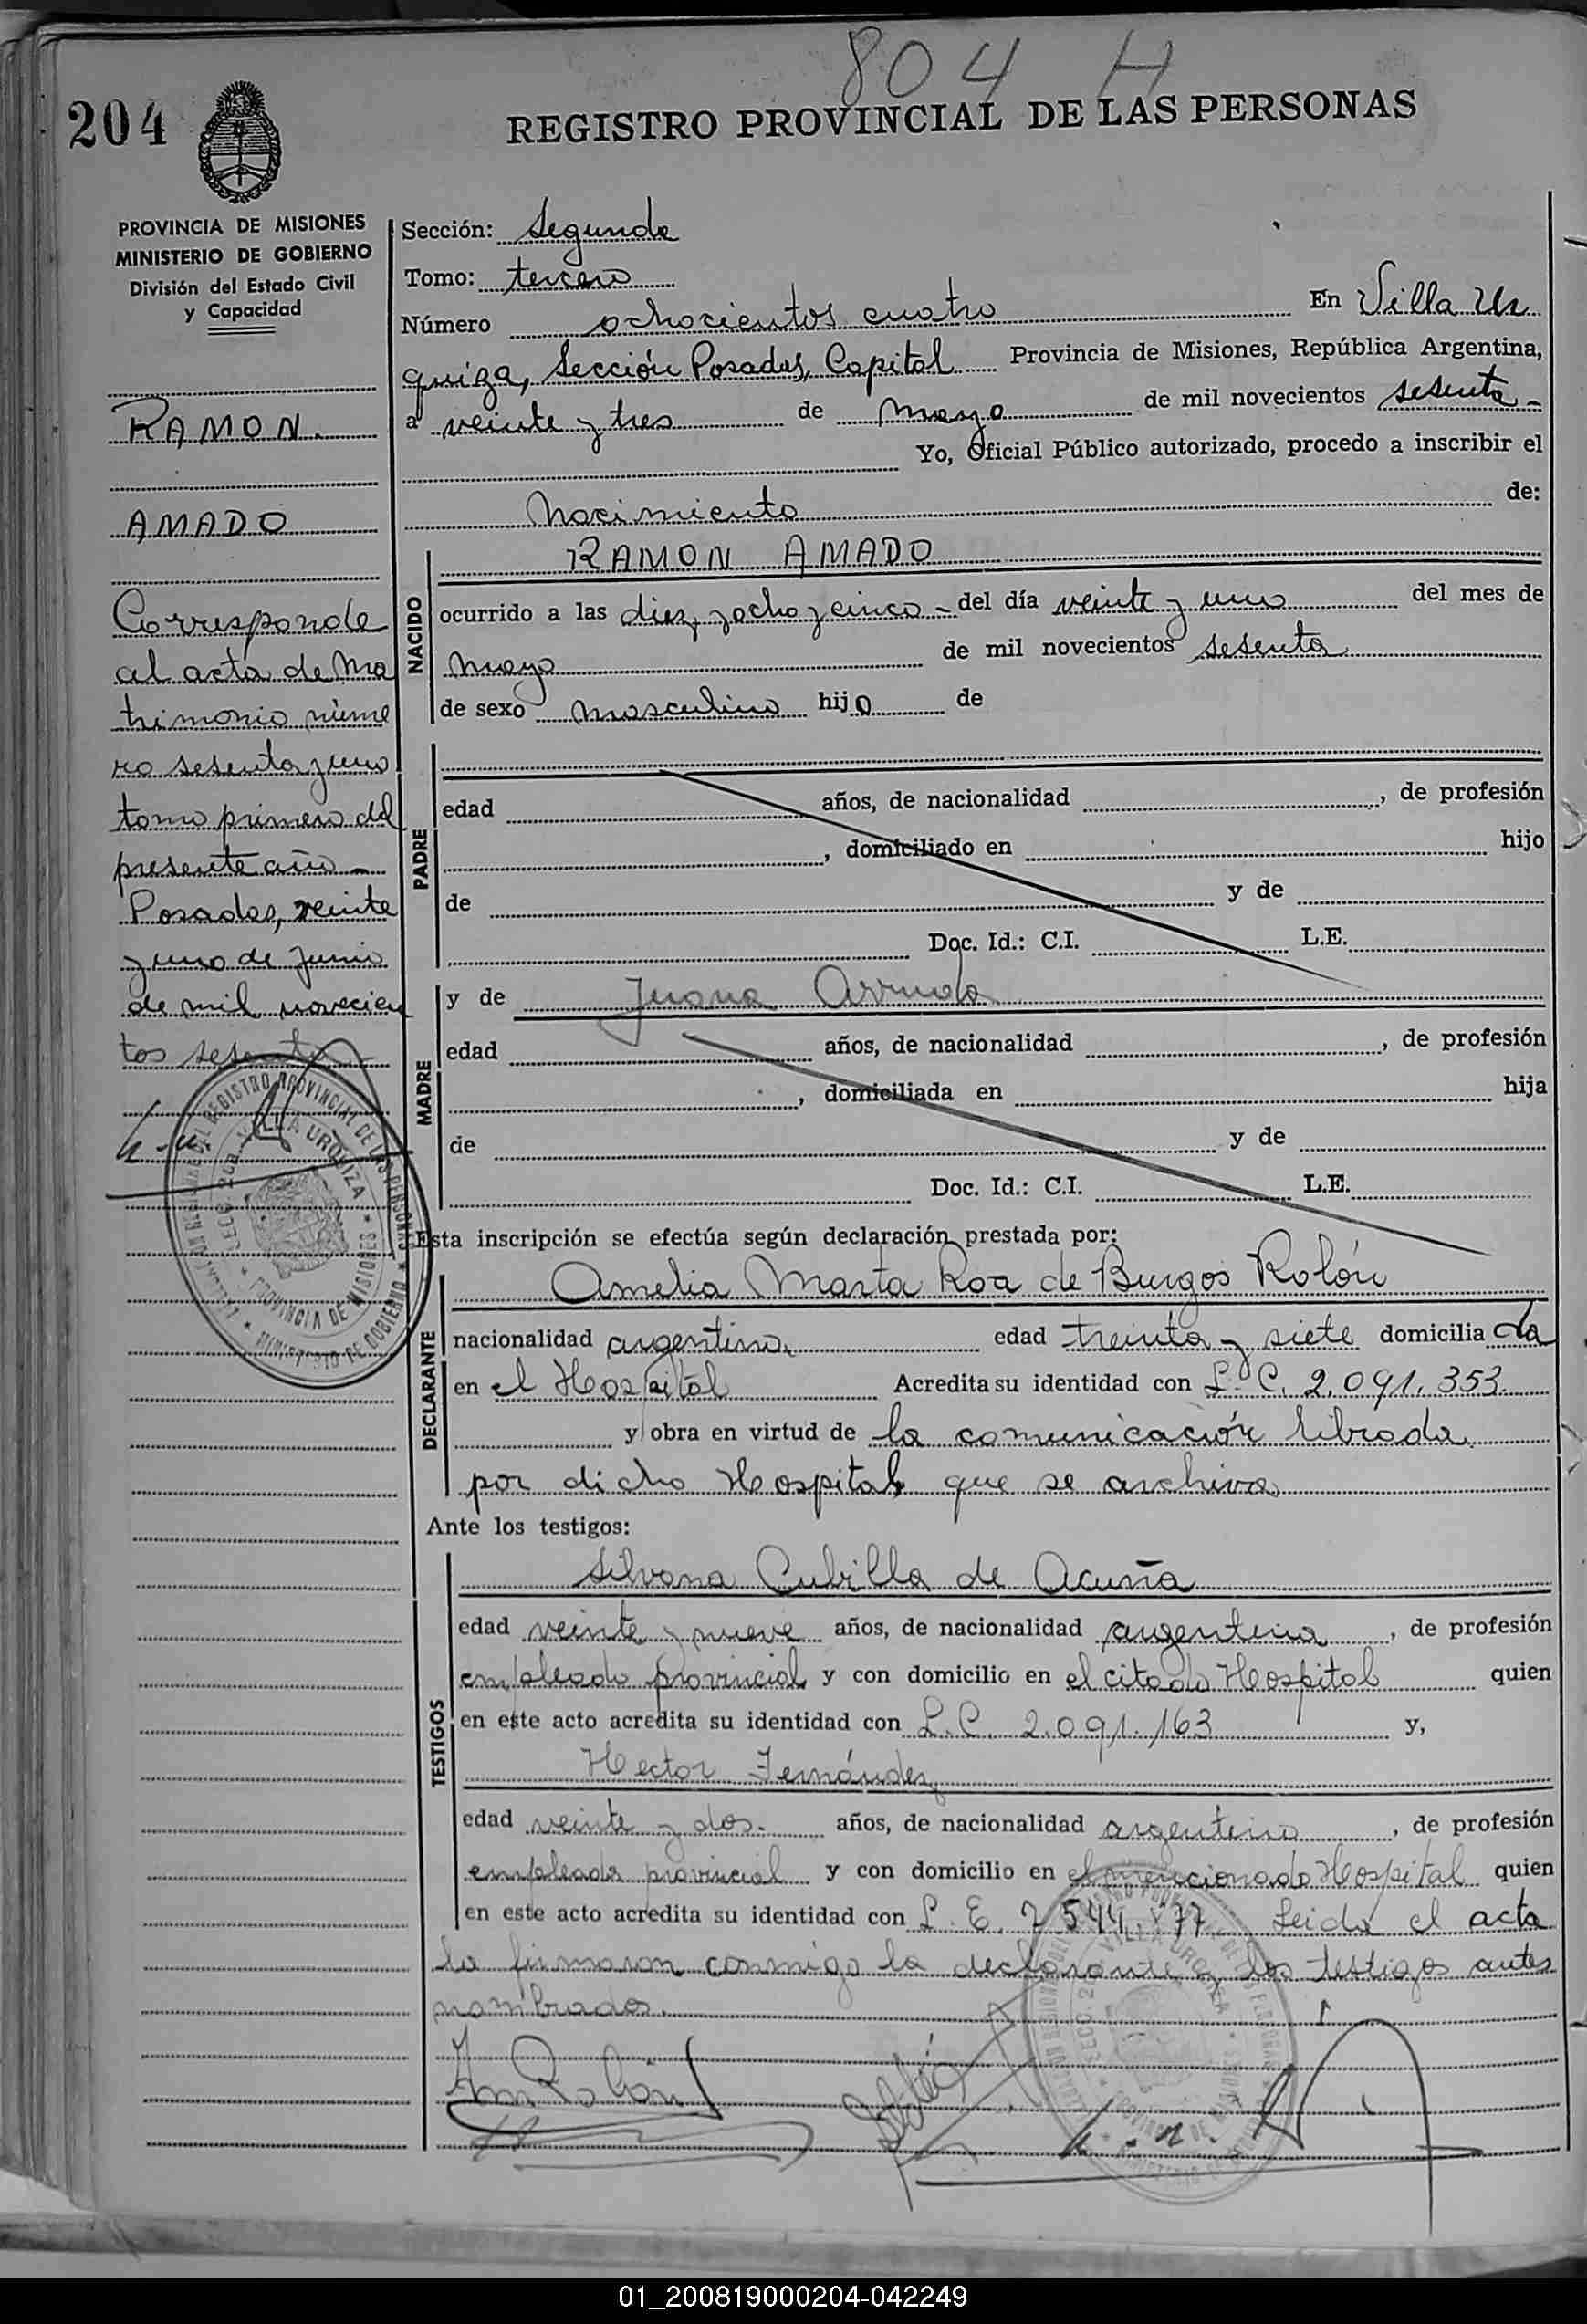 804 H
204
REGISTRO PROVINCIAL DE LAS PERSONAS
PROVINCIA DE MISIONES
MINISTERIO DE GOBIERNO
División del Estado Civil
y Capacidad
RAMON
AMADO
Corresponde
al acta de Ma
trimonio núme
ro sesenta y uno
tomo primero del
presente año -
Posadas, veinte
y uno de Junio
de mil novecien
tos sesenta
Sección: Segunda
Tomo: tercero
Número ochocientos cuatro En Villa Ur
quiza, Sección Posadas, Capital Provincia de Misiones, República Argentina,
a veinte y tres de mayo de mil novecientos sesenta -
Yo, Oficial Público autorizado, procedo a inscribir el
Nacimiento de:
NACIDO
RAMON AMADO
ocurrido a las diez y ocho y cinco - del día veinte y uno del mes de
mayo de mil novecientos sesenta
de sexo masculino hijo de
PADRE
edad años, de nacionalidad , de profesión
, domiciliado en hijo
de y de
Doc. Id.: C.I. L.E.
MADRE
y de Juana Arruda
edad años, de nacionalidad , de profesión
, domiciliada en hija
de y de
Doc. Id.: C.I. L.E.
Esta inscripción se efectúa según declaración prestada por:
DECLARANTE
Amelia Marta Roa de Burgos Rolón
nacionalidad argentina edad treinta y siete domicilia da
en el Hospital Acredita su identidad con L. C. 2.091.353.
y obra en virtud de la comunicación librada
por dicho Hospital que se archiva
Ante los testigos:
TESTIGOS
Silvana Cubilla de Acuña
edad veinte y nueve años, de nacionalidad argentina , de profesión
empleado provincial y con domicilio en el citado Hospital quien
en este acto acredita su identidad con L.C. 2.091.163 y,
Hector Fernández
edad veinte y dos. años, de nacionalidad argentino , de profesión
empleado provincial y con domicilio en el mencionado Hospital quien
en este acto acredita su identidad con L. E. 7 544. 77 Leida el acta
la firmaron conmigo la declarante y los testigos antes
nombrados.
VILLA URQUIZA
PROVINCIA DE MISIONES
MINISTERIO DE GOBIERNO
01_200819000204-042249